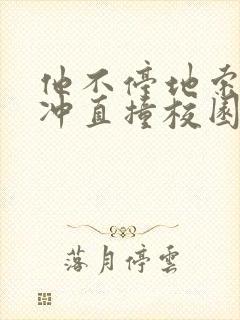 他不停地索
冲直撞校园
落月停雲